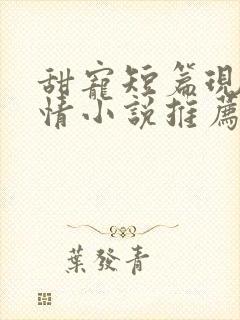 甜寵短篇現
情小說推薦
葉發青